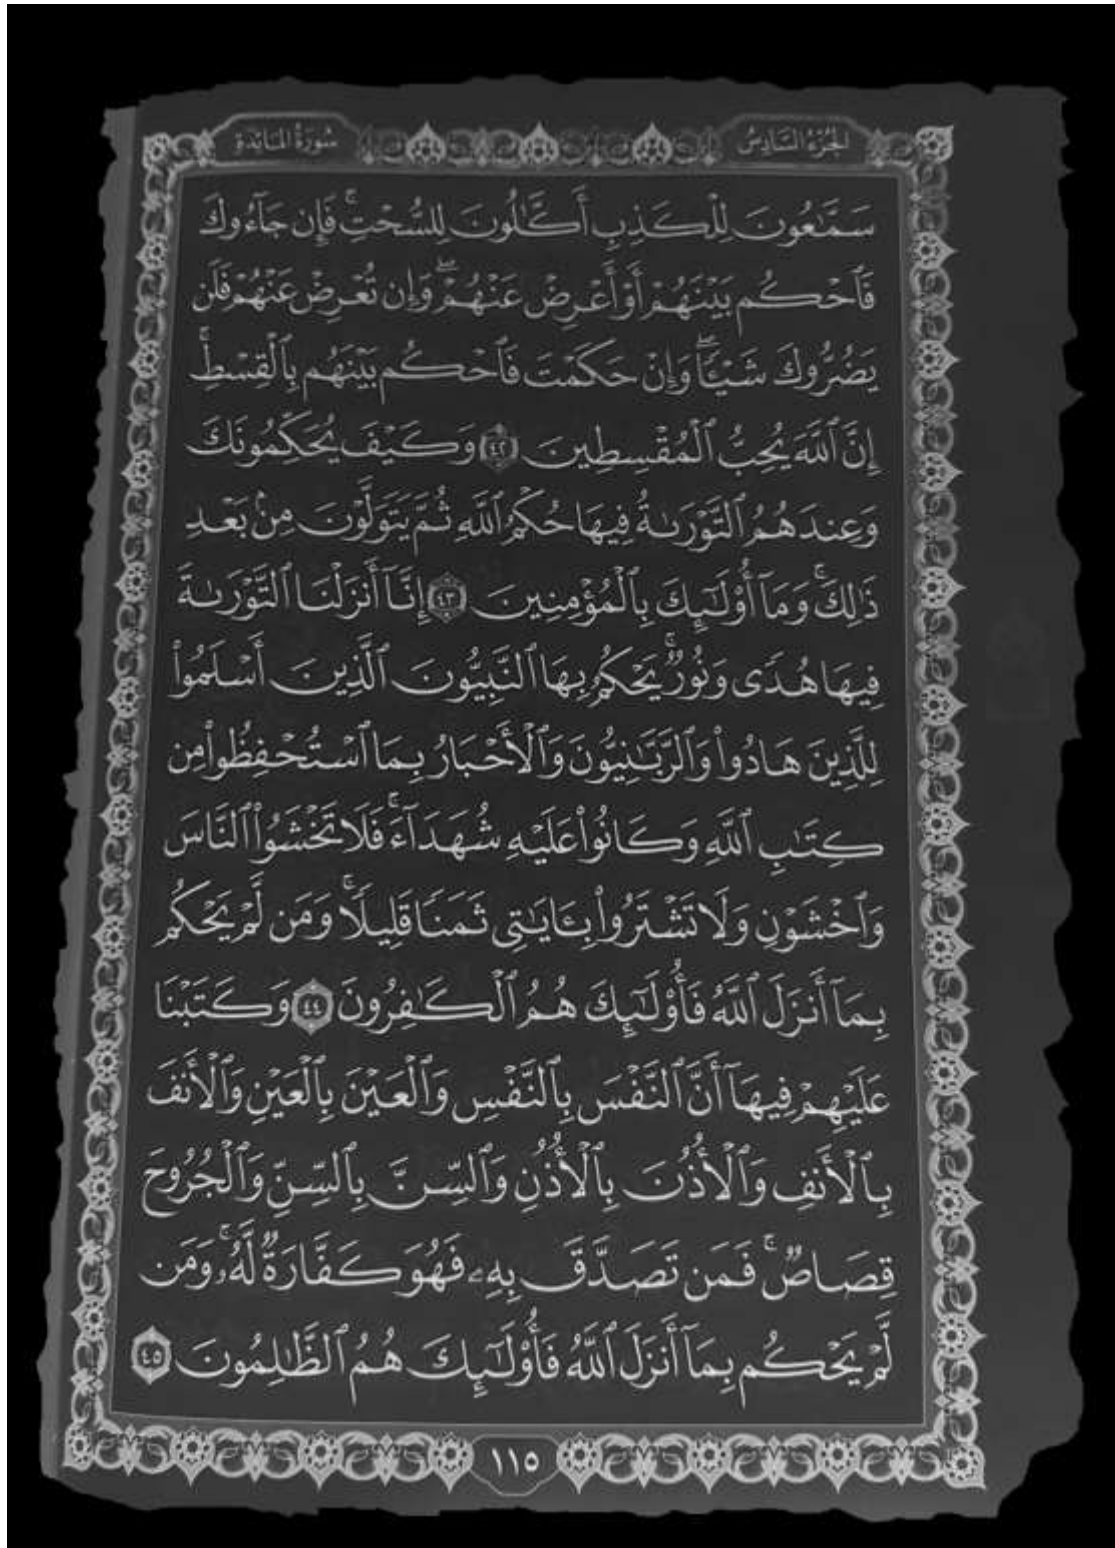 الجزء السادس
سورة المائدة
سَمَّٰعُونَ لِلْكَذِبِ أَكَّٰلُونَ لِلسُّحْتِۚ فَإِن جَآءُوكَ
فَٱحْكُم بَيْنَهُمْ أَوْ أَعْرِضْ عَنْهُمْۖ وَإِن تُعْرِضْ عَنْهُمْ فَلَن
يَضُرُّوكَ شَيْـًٔاۖ وَإِنْ حَكَمْتَ فَٱحْكُم بَيْنَهُم بِٱلْقِسْطِۚ
إِنَّ ٱللَّهَ يُحِبُّ ٱلْمُقْسِطِينَ ٤٢ وَكَيْفَ يُحَكِّمُونَكَ
وَعِندَهُمُ ٱلتَّوْرَىٰةُ فِيهَا حُكْمُ ٱللَّهِ ثُمَّ يَتَوَلَّوْنَ مِنۢ بَعْدِ
ذَٰلِكَۚ وَمَآ أُو۟لَٰٓئِكَ بِٱلْمُؤْمِنِينَ ٤٣ إِنَّآ أَنزَلْنَا ٱلتَّوْرَىٰةَ
فِيهَا هُدًى وَنُورٌۚ يَحْكُمُ بِهَا ٱلنَّبِيُّونَ ٱلَّذِينَ أَسْلَمُوا۟
لِلَّذِينَ هَادُوا۟ وَٱلرَّبَّٰنِيُّونَ وَٱلْأَحْبَارُ بِمَا ٱسْتُحْفِظُوا۟ مِن
كِتَٰبِ ٱللَّهِ وَكَانُوا۟ عَلَيْهِ شُهَدَآءَۚ فَلَا تَخْشَوُا۟ ٱلنَّاسَ
وَٱخْشَوْنِ وَلَا تَشْتَرُوا۟ بِـَٔايَٰتِى ثَمَنًا قَلِيلًاۚ وَمَن لَّمْ يَحْكُم
بِمَآ أَنزَلَ ٱللَّهُ فَأُو۟لَٰٓئِكَ هُمُ ٱلْكَٰفِرُونَ ٤٤ وَكَتَبْنَا
عَلَيْهِمْ فِيهَآ أَنَّ ٱلنَّفْسَ بِٱلنَّفْسِ وَٱلْعَيْنَ بِٱلْعَيْنِ وَٱلْأَنفَ
بِٱلْأَنفِ وَٱلْأُذُنَ بِٱلْأُذُنِ وَٱلسِّنَّ بِٱلسِّنِّ وَٱلْجُرُوحَ
قِصَاصٌۚ فَمَن تَصَدَّقَ بِهِۦ فَهُوَ كَفَّارَةٌ لَّهُۥۚ وَمَن
لَّمْ يَحْكُم بِمَآ أَنزَلَ ٱللَّهُ فَأُو۟لَٰٓئِكَ هُمُ ٱلظَّٰلِمُونَ ٤٥
١١٥